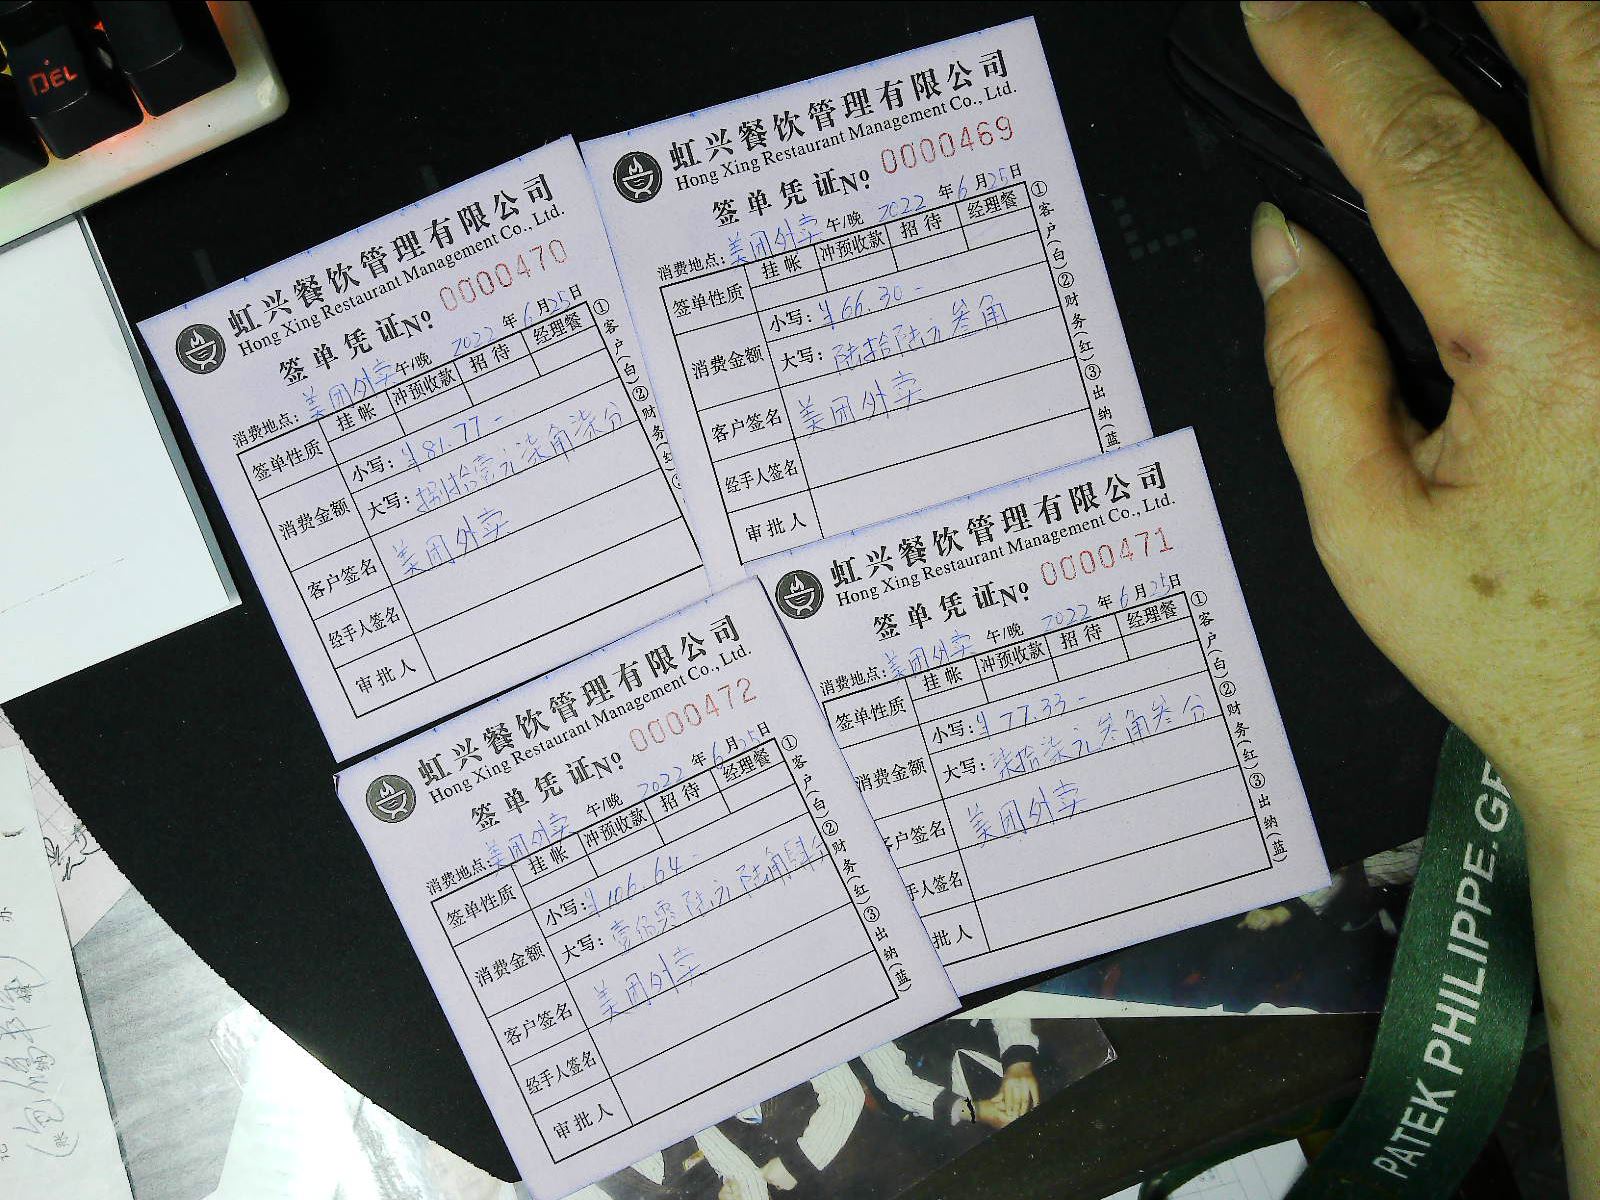 DEL
虹兴餐饮管理有限公司
Hong Xing Restaurant Management Co., Ltd.
签单凭证No. 0000469
消费地点: 美团外卖 午/晚 2022年6月25日
签单性质 挂帐 冲预收款 招待 经理餐
消费金额 小写: ¥66.30-
大写: 陆拾陆元叁角
客户签名 美团外卖
经手人签名
审批人
①客户(白)②财务(红)③出纳(蓝
虹兴餐饮管理有限公司
Hong Xing Restaurant Management Co., Ltd.
签单凭证No. 0000470
消费地点: 美团外卖 午/晚 2022年6月25日
签单性质 挂帐 冲预收款 招待 经理餐
消费金额 小写: ¥81.77-
大写: 捌拾壹元柒角柒分
客户签名 美团外卖
经手人签名
审批人
①客户(白)②财务(红
虹兴餐饮管理有限公司
Hong Xing Restaurant Management Co., Ltd.
签单凭证No. 0000471
消费地点: 美团外卖 午/晚 2022年6月25日
签单性质 挂帐 冲预收款 招待 经理餐
消费金额 小写: ¥77.33-
大写: 柒拾柒元叁角叁分
客户签名 美团外卖
手人签名
批人
①客户(白)②财务(红)③出纳(蓝)
虹兴餐饮管理有限公司
Hong Xing Restaurant Management Co., Ltd.
签单凭证No. 0000472
消费地点: 美团外卖 午/晚 2022年6月25日
签单性质 挂帐 冲预收款 招待 经理餐
消费金额 小写: ¥106.64-
大写: 壹佰零陆元陆角肆分
客户签名 美团外卖
经手人签名
审批人
①客户(白)②财务(红)③出纳(蓝)
PATEK PHILIPPE.GE